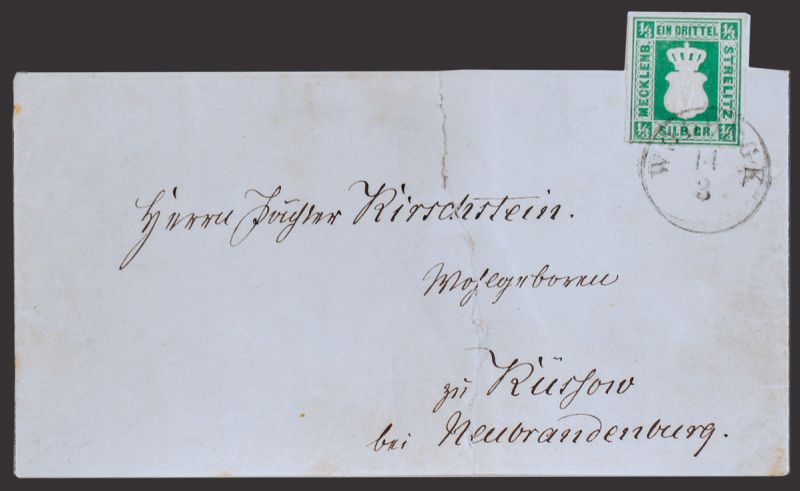 1/3 EIN DRITTEL 1/3
MECKLENB.
STRELITZ
1/3 SILB.GR. 1/3
14
3
Herrn Pächter Kirschstein.
Wohlgeboren
zu Küssow
bei Neubrandenburg.